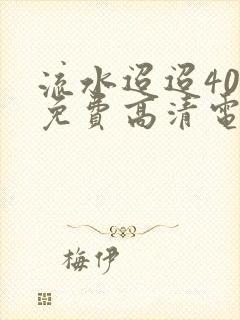 流水迢迢40
免費高清電
梅伊